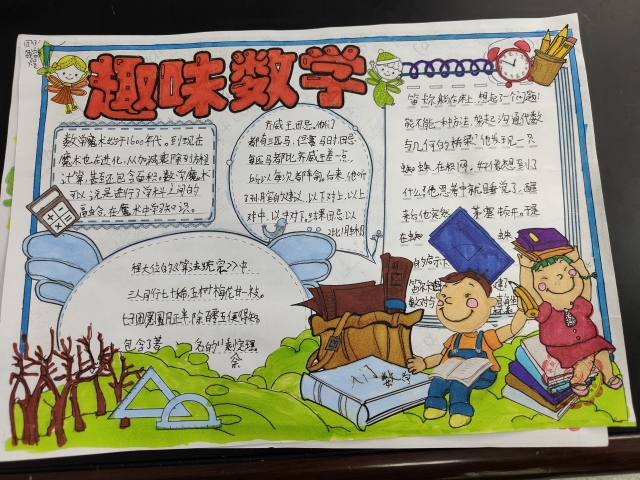 趣味数学
数学魔术始于1600年代。到现在
魔术也在进化,从加减乘除到方程
计算,甚至包含面积。数学魔术
可以说是进行了学科之间的
融合,在魔术中学知识。
齐威王田忌,他们
都有三匹马,但寡与时田忌
每匹马都比齐威王差一点,
所以每次都拜输。后来他听
了孙膑的建议,以下对上,以上
对中,以中对下,结果田忌以
2比1
笛卡尔躺在床上,想起了一个问题:
能不能一种方法,架起沟通代数
与几何的桥梁?他发现一只
蜘蛛在织网,好像想到了
什么?他思考中就睡着了,醒
来后他突然 茅塞顿开。于是
在蜘 蛛
的启示下
笛尔
程大位的《算法统宗》中
三人同行七十稀,五树梅花廿一枝。
七子团圆月正半,除百零五便得知。
包含了著 名的剩定理
余
入门数学